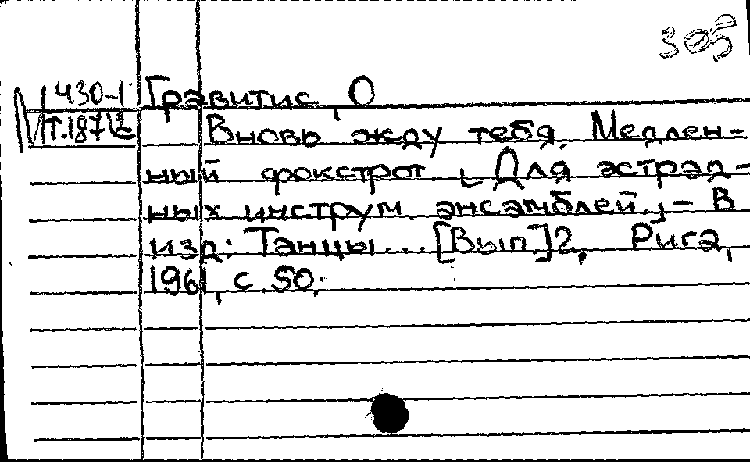 305
М 430-1 Гравитис, О
Т.1871/2 Вновь жду тебя. Медлен-
ный фокстрот [Для эстрад-
ных инструм. энсамблей]. – В
изд: Танцы... [Вып.]2, Рига,
1961, с. 50.